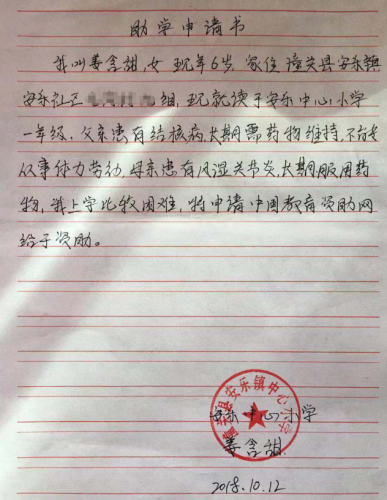 助学申请书
我叫姜含甜,女 现年6岁,家住 潼关县安乐镇
安乐社区 组,现就读于安乐中心小学
一年级,父亲患有结核病,长期需药物维持,不能
从事体力劳动,母亲患有风湿关节炎,长期服用药
物,我上学比较困难,特申请中国教育资助网
给于资助。
潼关县安乐镇中心小学
安乐中心小学
姜含甜
2018.10.12